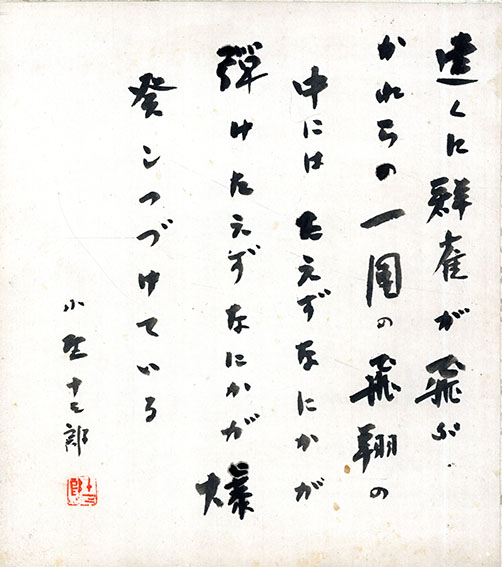 遠くに群雀が飛ぶ・
かれらの一團の飛翔の
中には たえずなにかが
弾け たえずなにかが爆
発しつづけている
小野十三郎